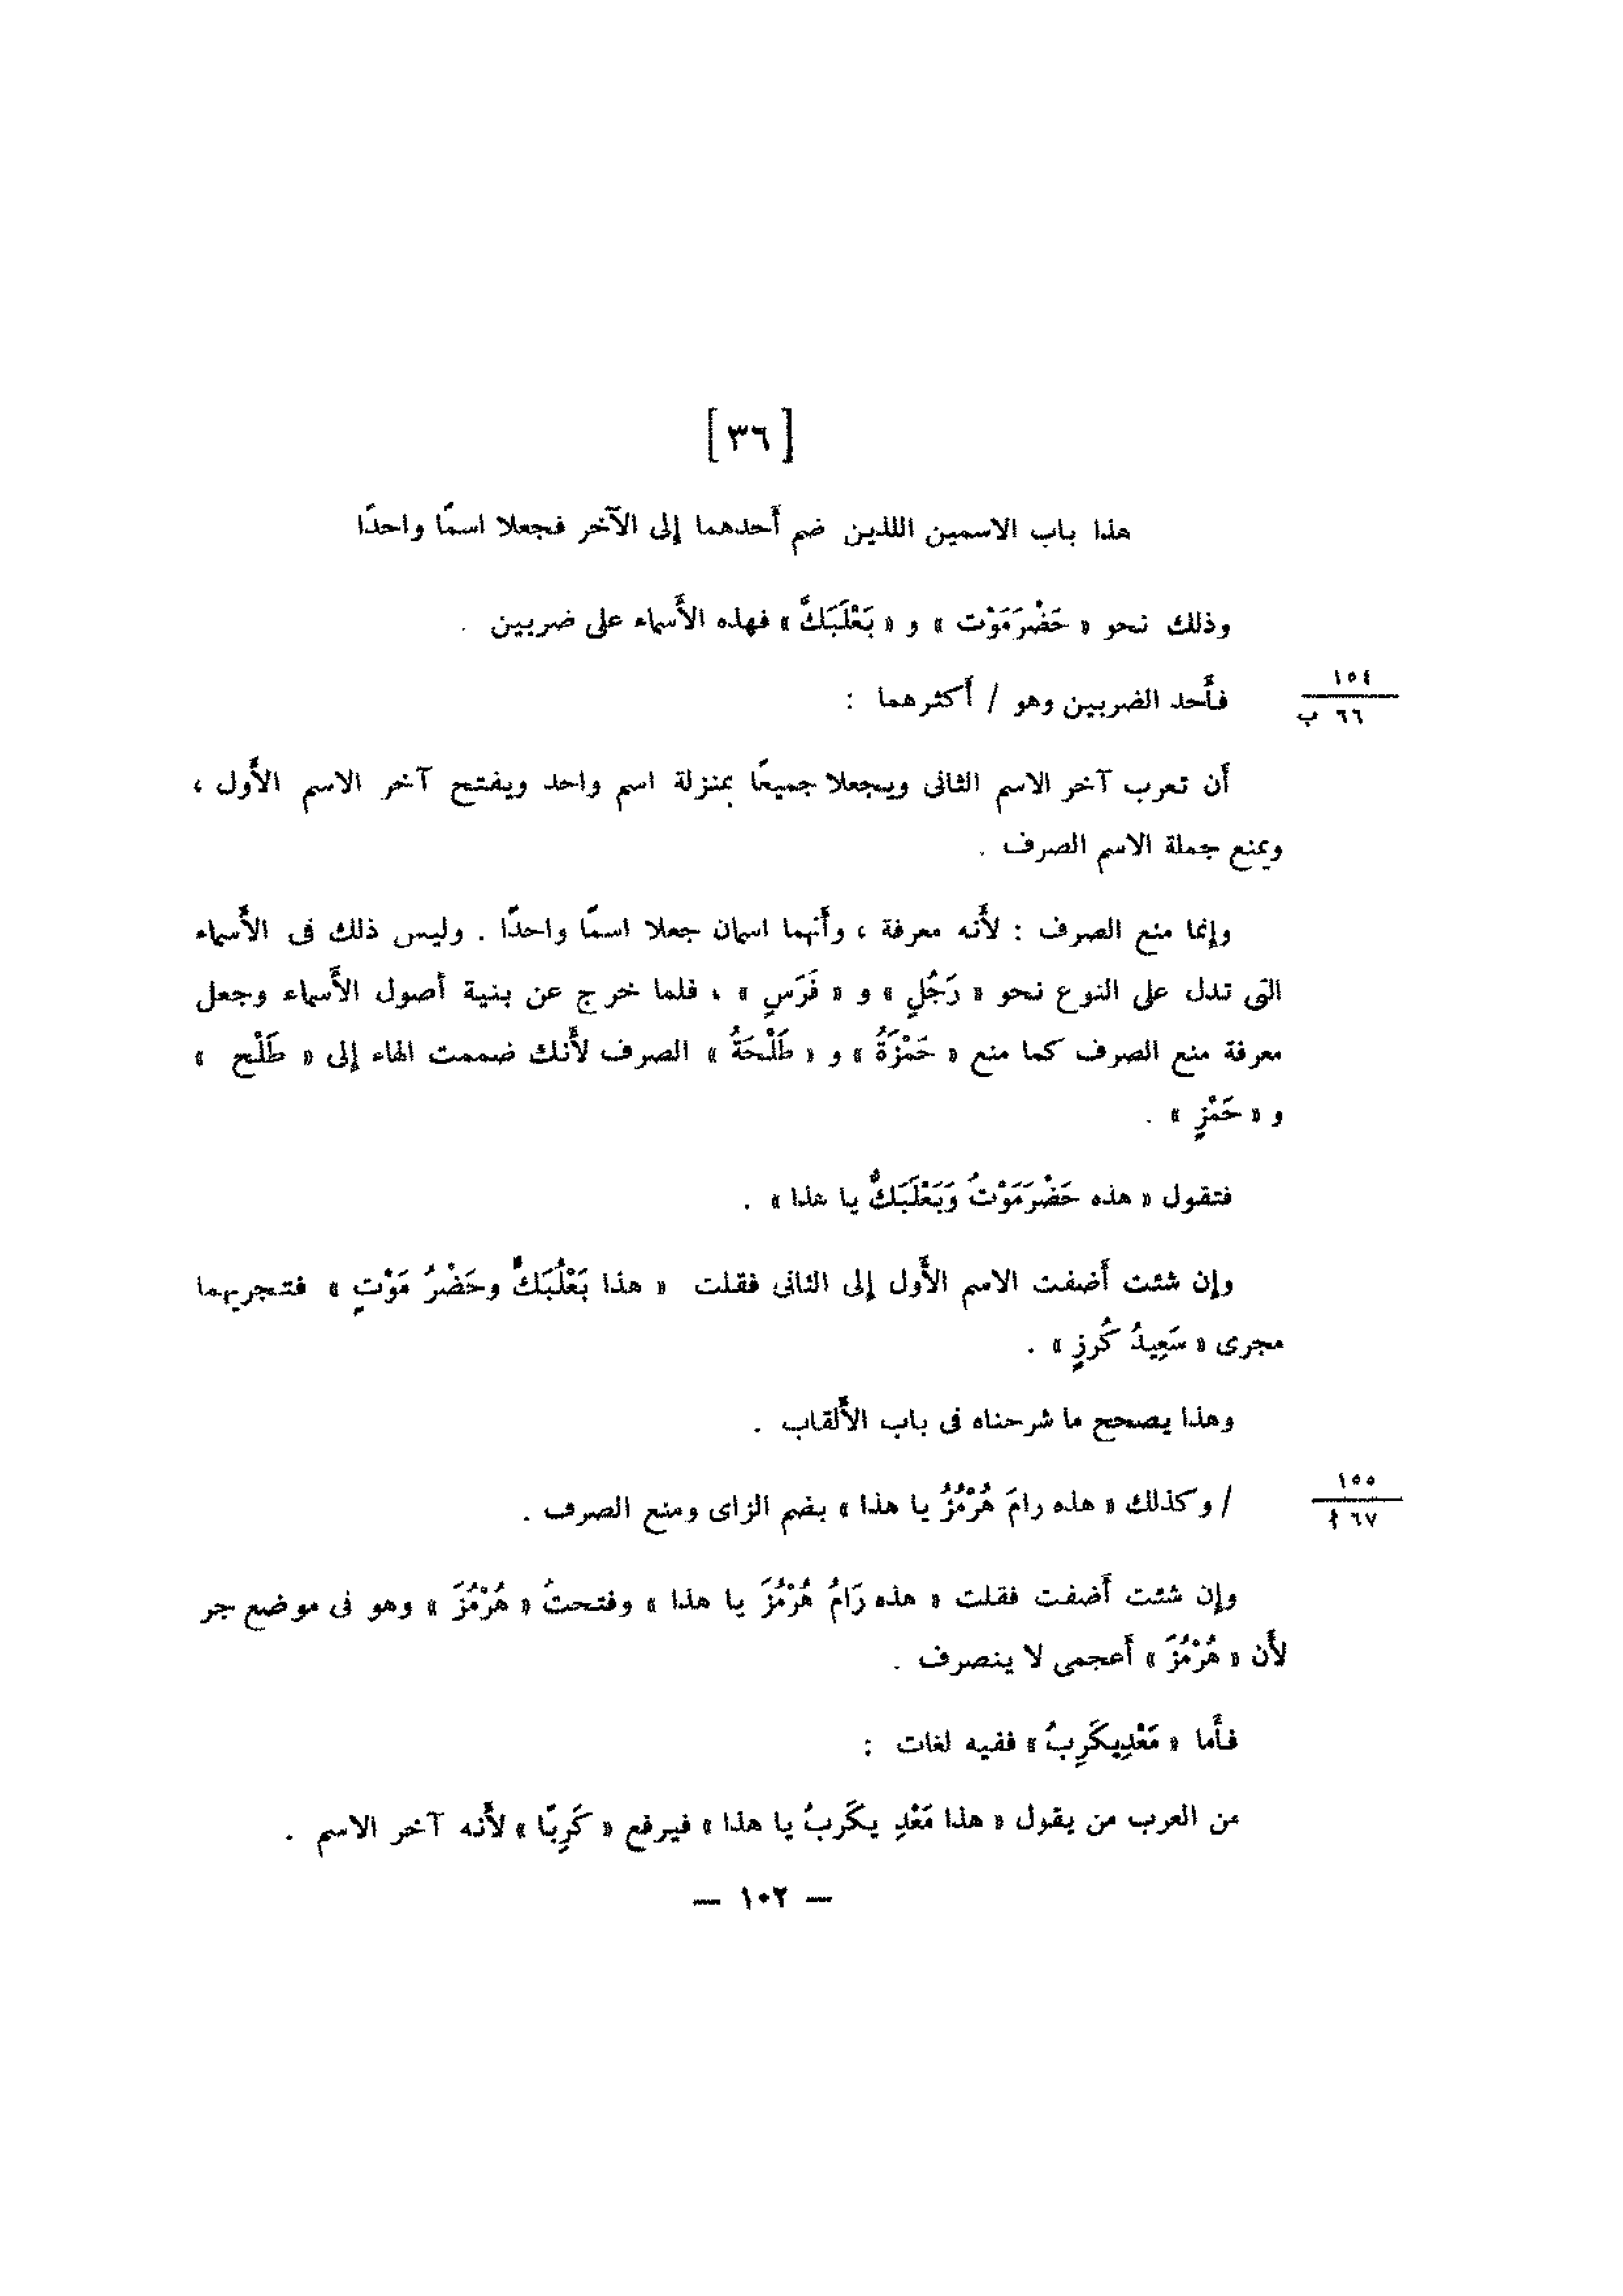 [٣٦]
هذا باب الاسمين اللذين ضم أَحدهما إلى الآخر فجعلا اسمًا واحدًا
وذلك نحو « حَضْرَمَوْت » و « بَعْلَبَكَّ » فهذه الأَسماء على ضربين .
١٥٤
فأَحد الضربين وهو / أَكثرهما :
٦٦ ب
أَن تعرب آخر الاسم الثانى ويجعلا جميعًا بمنزلة اسم واحد ويفتح آخر الاسم الأَول ،
ويمنع جملة الاسم الصرف .
وإنما منع الصرف : لأَنه معرفة ، وأَنهما اسمان جعلا اسمًا واحدًا . وليس ذلك فى الأَسماء
التى تدل على النوع نحو « رَجُلٍ » و « فَرَسٍ » ، فلما خرج عن بنية أصول الأَسماء وجعل
معرفة منع الصرف كما منع « حَمْزَةُ » و « طَلْحَةُ » الصرف لأَنك ضممت الهاء إلى « طَلْح »
و « حَمْزٍ » .
فتقول « هذه حَضْرَمَوْتُ وَبَعْلَبَكُّ يا هذا » .
وإن شئت أَضفت الاسم الأَول إلى الثانى فقلت « هذا بَعْلُبَكٌّ وحَضْرُ مَوْتٍ » فتجريهما
مجرى « سَعِيدُ كُرزٍ » .
وهذا يصحح ما شرحناه فى باب الأَلقاب .
١٥٥
/ وكذلك « هذه رامَ هُرْمُزُ يا هذا » بضم الزاى ومنع الصرف .
٦٧ أ
وإن شئت أَضفت فقلت « هذه رَامُ هُرْمُزَ يا هذا » وفتحتُ « هُرْمُزَ » وهو فى موضع جر
لأَن « هُرْمُزَ » أَعجمى لا ينصرف .
فأَما « مَعْدِيكَرِبُ » ففيه لغات :
من العرب من يقول « هذا مَعْدِ يكَربُ يا هذا » فيرفع « كَرِبًا » لأَنه آخر الاسم .
— ١٠٢ —